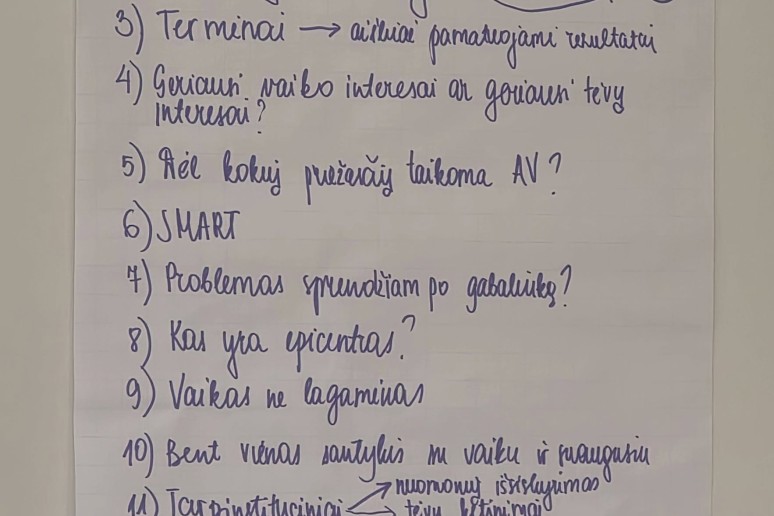 3) Terminai → aiškiai pamatuojami rezultatai
4) Geriausi vaiko interesai ar geriausi tėvų
interesai?
5) Dėl kokių priežasčių taikoma AV?
6) SMART
7) Problemas sprendžiam po gabaliuką?
8) Kas yra epicentras?
9) Vaikas ne lagaminas
10) Bent vienas santykis su vaiku ir suaugusiu
nuomonių išsiskyrimas
11) Tarpinstituciniai tėvų